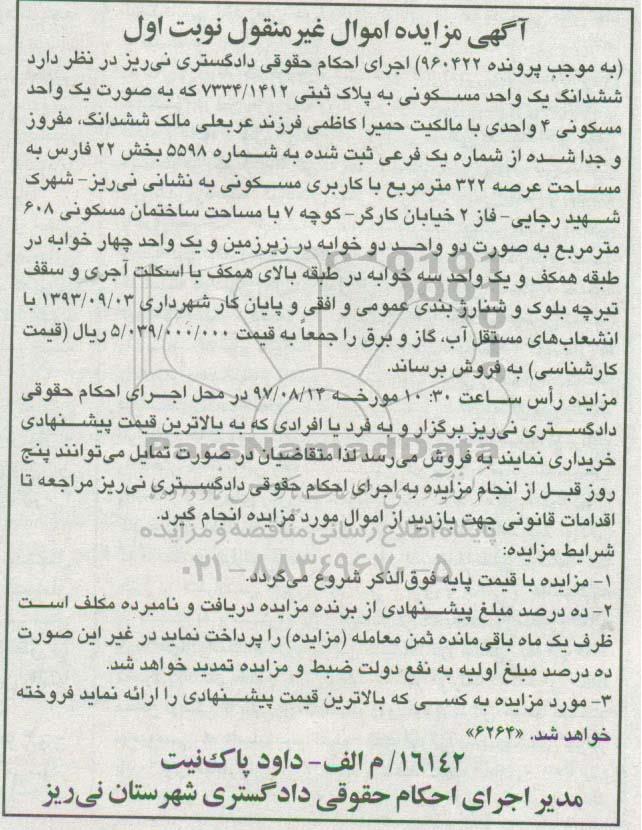 آگهی مزایده اموال غیرمنقول نوبت اول
(به موجب پرونده ۹۶۰۴۲۲) اجرای احکام حقوقی دادگستری نی‌ریز در نظر دارد
ششدانگ یک واحد مسکونی به پلاک ثبتی ۷۳۳۴/۱۴۱۲ که به صورت یک واحد
مسکونی ۴ واحدی با مالکیت حمیرا کاظمی فرزند عربعلی مالک ششدانگ، مفروز
و جدا شده از شماره یک فرعی ثبت شده به شماره ۵۵۹۸ بخش ۲۲ فارس به
مساحت عرصه ۳۲۲ مترمربع با کاربری مسکونی به نشانی نی‌ریز- شهرک
شهید رجایی- فاز ۲ خیابان کارگر- کوچه ۷ با مساحت ساختمان مسکونی ۶۰۸
مترمربع به صورت دو واحد دو خوابه در زیرزمین و یک واحد چهار خوابه در
طبقه همکف و یک واحد سه خوابه در طبقه بالای همکف با اسکلت آجری و سقف
تیرچه بلوک و شناژ بندی عمومی و افقی و پایان کار شهرداری ۱۳۹۳/۰۹/۰۳ با
انشعاب‌های مستقل آب، گاز و برق را جمعاً به قیمت ۵/۰۳۹/۰۰۰/۰۰۰ ریال (قیمت
کارشناسی) به فروش برساند.
مزایده رأس ساعت ۱۰:۳۰ مورخه ۹۷/۰۸/۱۴ در محل اجرای احکام حقوقی
دادگستری نی‌ریز برگزار و به فرد یا افرادی که به بالاترین قیمت پیشنهادی
خریداری نمایند به فروش می‌رسد لذا متقاضیان در صورت تمایل می‌توانند پنج
روز قبل از انجام مزایده به اجرای احکام حقوقی دادگستری نی‌ریز مراجعه تا
اقدامات قانونی جهت بازدید از اموال مورد مزایده انجام گیرد.
شرایط مزایده:
۱- مزایده با قیمت پایه فوق‌الذکر شروع می‌گردد.
۲- ده درصد مبلغ پیشنهادی از برنده مزایده دریافت و نامبرده مکلف است
ظرف یک ماه باقی‌مانده ثمن معامله (مزایده) را پرداخت نماید در غیر این صورت
ده درصد مبلغ اولیه به نفع دولت ضبط و مزایده تمدید خواهد شد.
۳- مورد مزایده به کسی که بالاترین قیمت پیشنهادی را ارائه نماید فروخته
خواهد شد. «۶۲۶۴»
۱۶۱۴۲/ م الف- داود پاک‌نیت
مدیر اجرای احکام حقوقی دادگستری شهرستان نی‌ریز
ParsNamadData
پایگاه اطلاع رسانی مناقصه و مزایده
۰۲۱-۸۸۳۴۹۶۷۰-۵